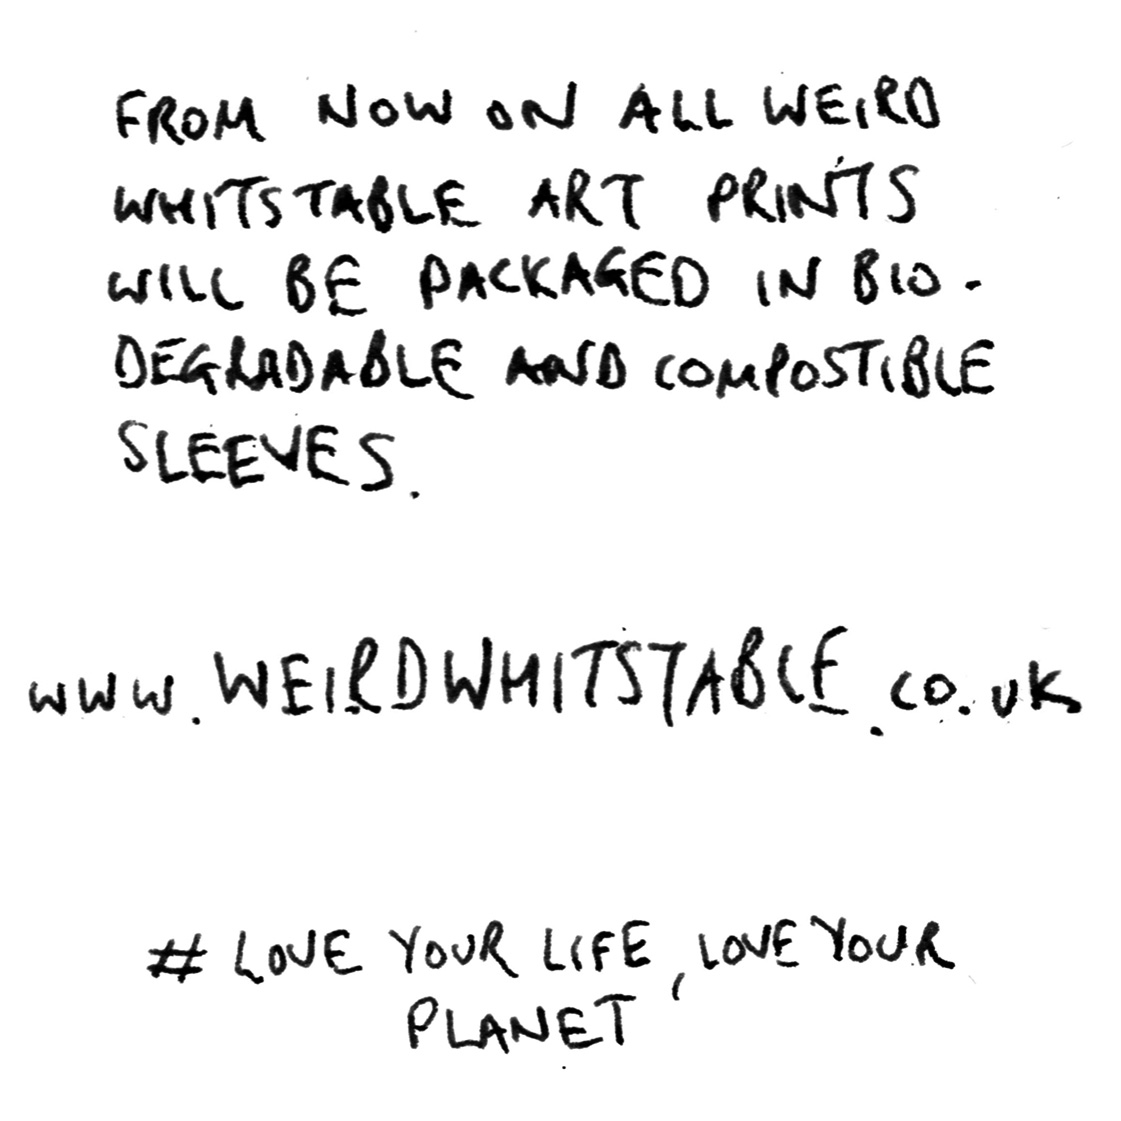 FROM NOW ON ALL WEIRD
WHITSTABLE ART PRINTS
WILL BE PACKAGED IN BIO-
DEGRADABLE AND COMPOSTIBLE
SLEEVES.
www.WEIRDWHITSTABLE.co.uk
# LOVE YOUR LIFE, LOVE YOUR
PLANET